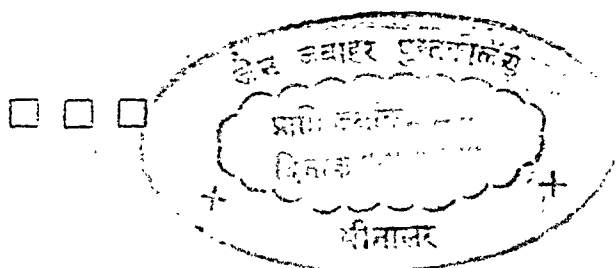 जैन जवाहर पुस्तकालय
प्राप्ति क्रमांक
दिनांक
भीनासर